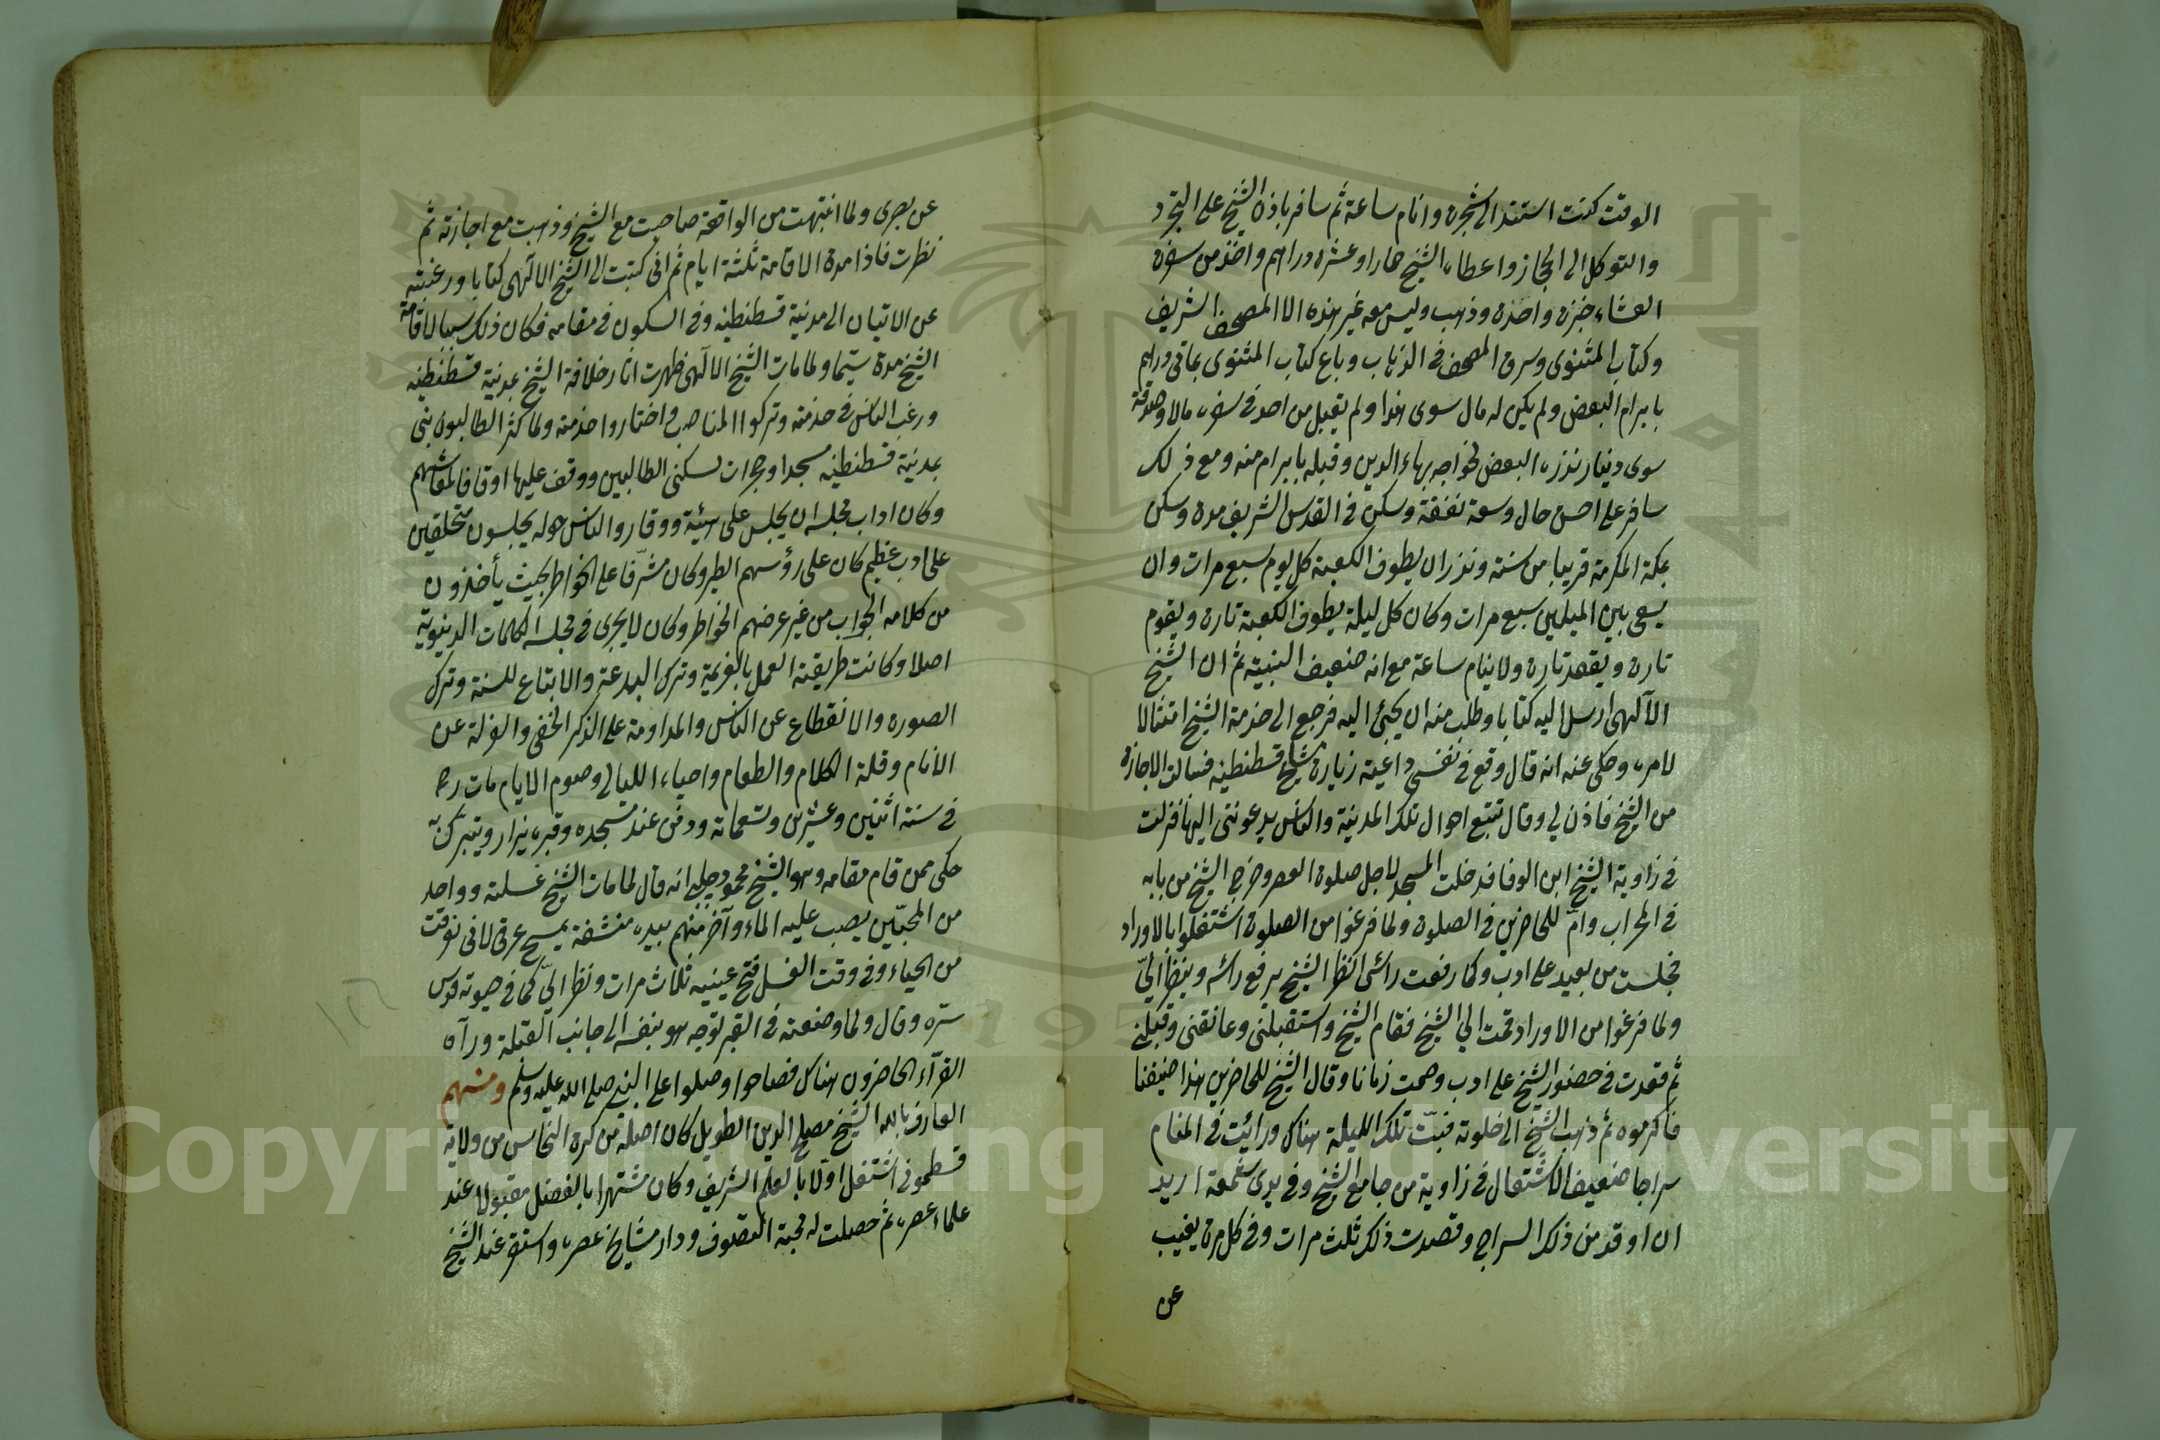 الوقت كنت استند الى شجرة وانام ساعة ثم سافر باذن الشيخ على التجرد
والتوكل الى الحجاز واعطاه الشيخ حمارا وعشرة دراهم واخذ من سفرة
العشاء خبزة واحدة وذهب وليس معه غير هذه الا المصحف الشريف
وكتاب المثنوى وسرق المصحف فى الذهاب وباع كتاب المثنوى بماتى دراهم
بابرام البعض ولم يكن له مال سوى هذا ولم يقبل من احد فى سفره مالا وصدقة
سوى دينار نذره البعض لخواجه بهاء الدين وقبله بابرام منه ومع ذلك
سافر على احسن حال وسعة نفقة وسكن فى القدس الشريف مدة وسكن
بمكة المكرمة قريبا من سنة ونذر ان يطوف الكعبة كل يوم سبع مرات وان
يسعى بين الميلين سبع مرات وكان كل ليلة يطوف الكعبة تارة ويقوم
تارة ويقعد تارة ولا ينام ساعة مع انه ضعيف البنية ثم ان الشيخ
الآلهى ارسل اليه كتابا وطلب منه ان يجئ اليه فرجع الى خدمة الشيخ امتثالا
لامره وحكى عنه انه قال وقع فى نفسى داعية زيارة مشايخ قسطنطينه فسالت الاجازة
من الشيخ فاذن لى وقال تتبع احوال تلك المدينة والناس يدعوننى اليها فنزلت
فى زاوية الشيخ ابن الوفا فدخلت المسجد لاجل صلوة العصر وخرج الشيخ من بابه
فى المحراب وامّ للحاضرين فى الصلوة ولما فرغوا من الصلوة اشتغلوا بالاوراد
فجلست من بعيد على ادب وكلما رفعت رائسى انظر الشيخ يرفع رائسه وينظر الىّ
ولما فرغوا من الاوراد قمت الى الشيخ فقام الشيخ واستقبلنى وعانقنى وقبلنى
ثم قعدت فى حضور الشيخ على ادب وصمت زمانا وقال الشيخ للحاضرين هذا ضيفنا
فاكرموه ثم ذهب الشيخ الى خلوته فبتّ تلك الليلة هناك ورائيت فى المنام
سراجا ضعيف الاشتعال فى زاوية من جامع الشيخ وفى يدى شمعة اريد
ان اوقد من ذلك السراج وقصدت ذلك ثلث مرات وفى كل مرة يغيب
عن
عن بصرى ولما انتبهت من الواقعة صاحبت مع الشيخ وذهبت مع اجازته ثم
نظرت فاذا مدة الاقامة ثلثة ايام ثم انى كتبت الى الشيخ الالهى كتابا ورغبته
عن الاتيان الى مدينة قسطنطينه وفى السكون فى مقامه فكان ذلك سببا لاقامة
الشيخ مدة سيما ولما مات الشيخ الالهى ظهرت اثار خلافة الشيخ بمدينة قسطنطينه
ورغب الناس فى خدمته وتركوا المناصب واختاروا خدمته ولما كثر الطالبون بنى
بمدينة قسطنطينه مسجدا وحجرات لسكنى الطالبين ووقف عليها اوقافا لمعاشهم
وكان اداب مجلسه ان يجلس على هيئة ووقار والناس حوله يجلسون متحلقين
على ادب عظيم كان على رؤسهم الطير وكان مشرّفا على الخواطر بحيث يأخذون
من كلامه الجواب من غير عرضهم الخواطر وكان لا يجرى فى مجلسه الكلمات الدنيوية
اصلا وكانت طريقته العمل بالعزيمة وترك البدعة والاتباع للسنة وترك
الصورة والانقطاع عن الناس والمداومة على الذكر الخفى والعزلة عن
الانام وقلة الكلام والطعام واحياء الليالى وصوم الايام مات رح
فى سنة اثنين وعشرين وتسعمائة ودفن عند مسجده وقبره يزار ويتبرك به
حكى ممن قام مقامه وهو الشيخ محمود چلبى انه قال لما مات الشيخ غسلته وواحد
من المحبّين يصب عليه الماء وآخر منهم بيده منشفة يمسح عرقى لانى عرقت
من الحياء وفى وقت الغسل فتح عينيه ثلاث مرات ونظر الىّ كما فى حيوته قدس
سرّه وقال ولما وضعته فى القبر توجه هو بنفسه الى جانب القبلة ورآه
القرّاء الحاضرون هناك فصاحوا وصلوا على النبى صلى الله عليه وسلم ومنهم
العارف بالله الشيخ مصلح الدين الطويل كان اصله من كرة النحاس من ولاية
قسطمونى اشتغل اولا بالعلم الشريف وكان مشتهرا بالفضل مقبولا عند
علماء عصره ثم حصلت له محبة التصوف ودار مشايخ عصره واستقر عند الشيخ
Copyright © King Saud University